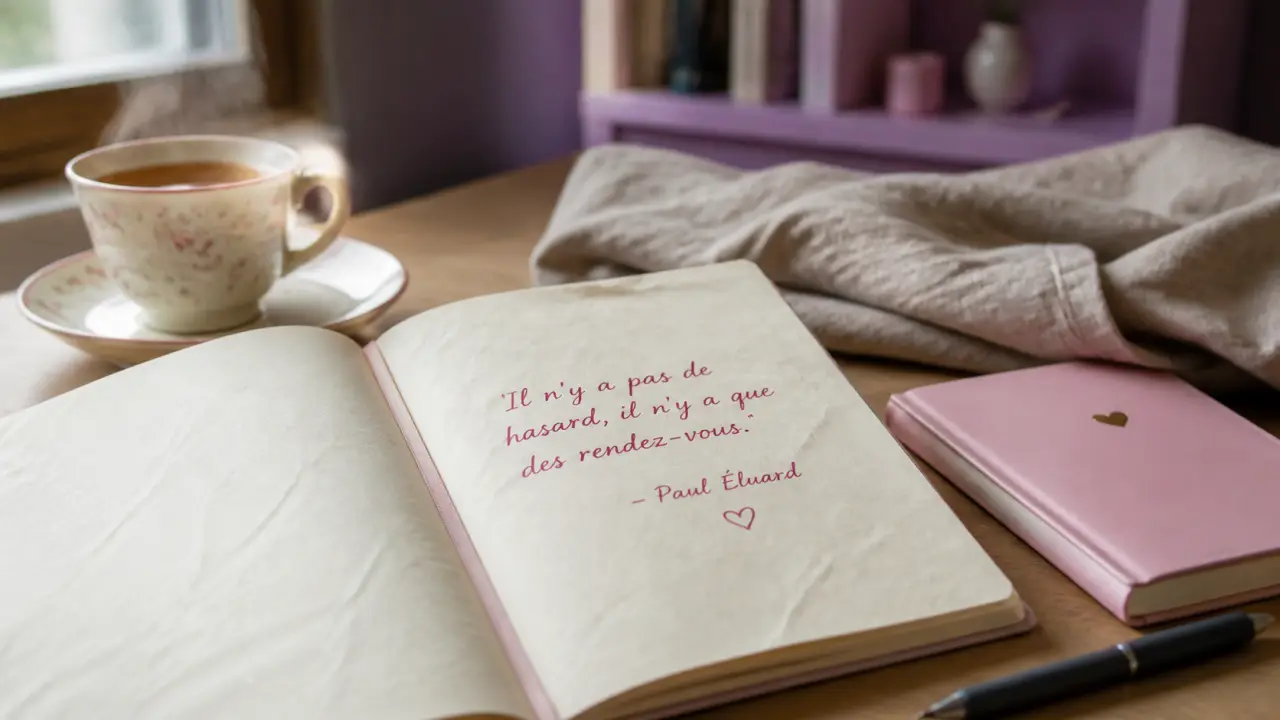 "Il n'y a pas de
hasard, il n'y a que
des rendez-vous."
– Paul Éluard